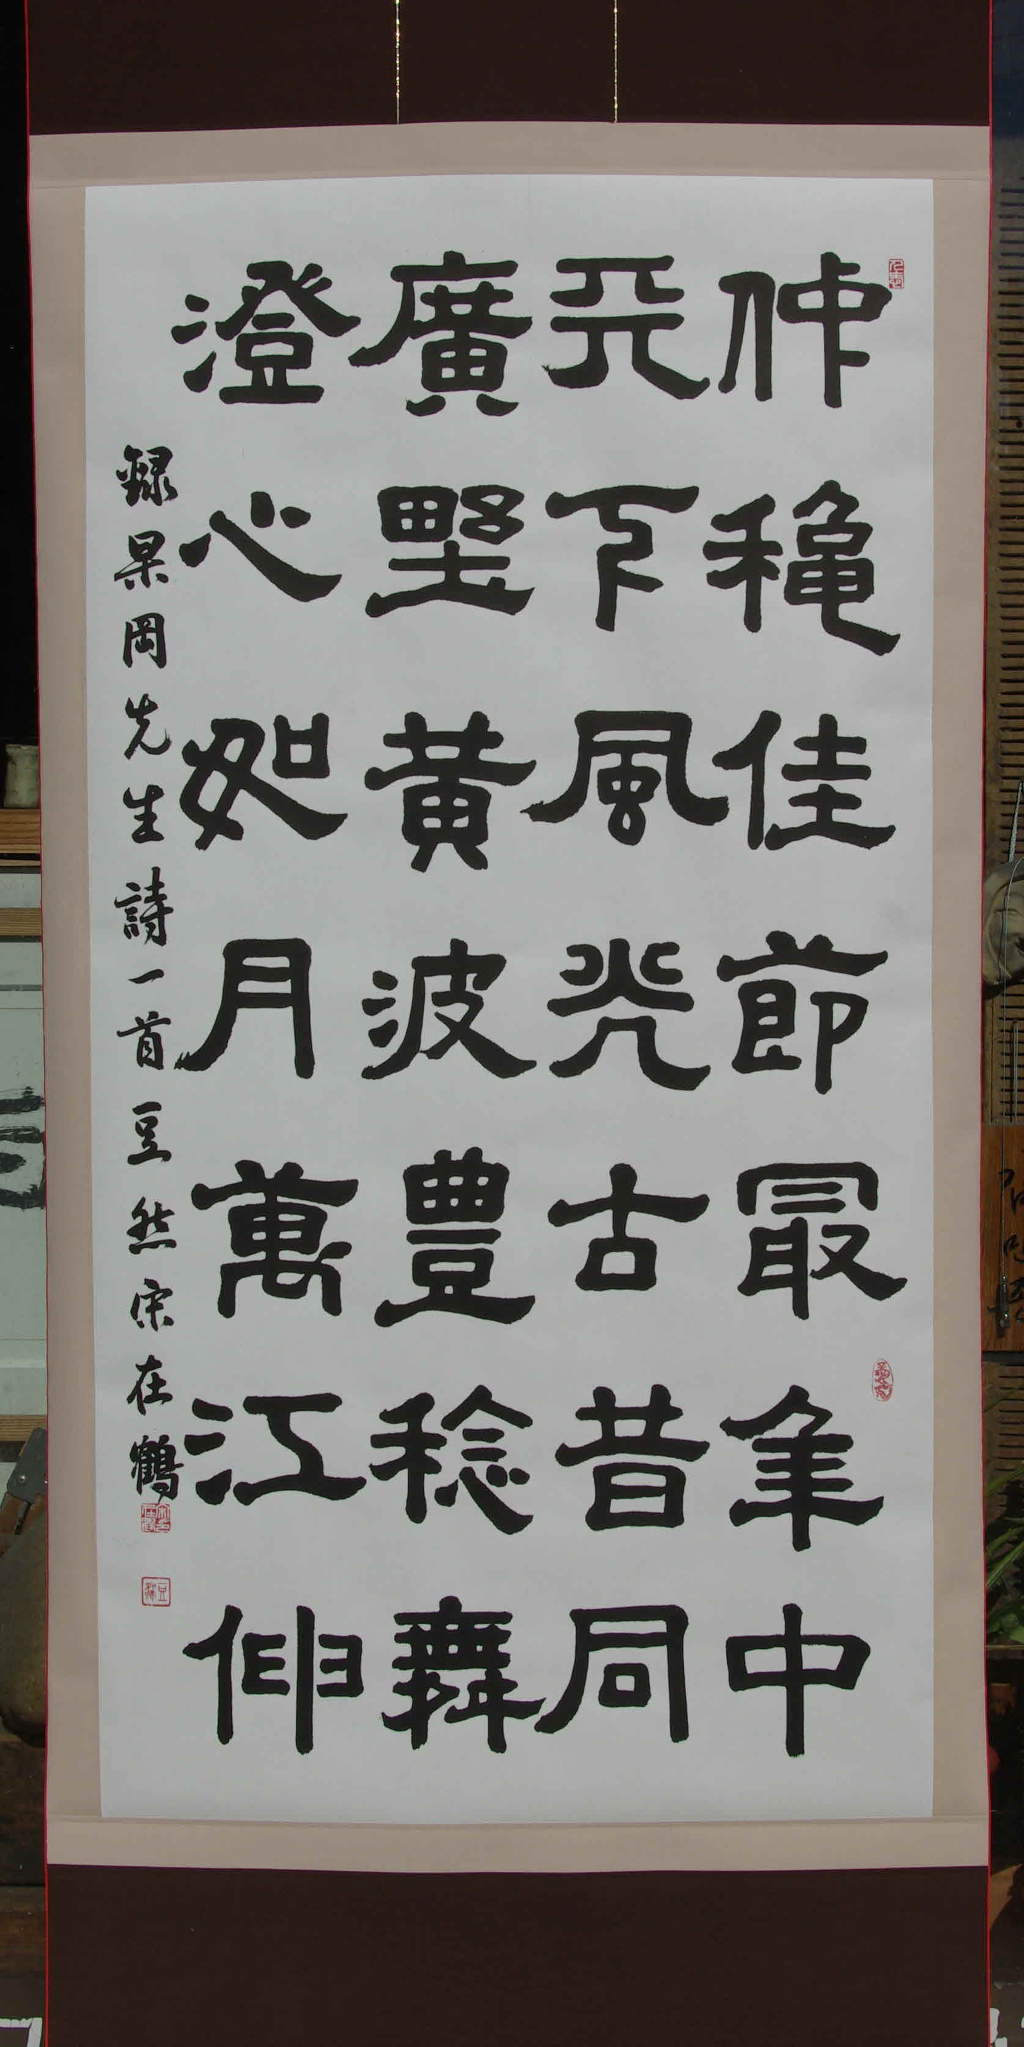 仲穐佳節最年中
天下風光古昔同
廣野黃波豊稔舞
澄心如月萬江伸
録杲岡先生詩一首豆然宋在鶴